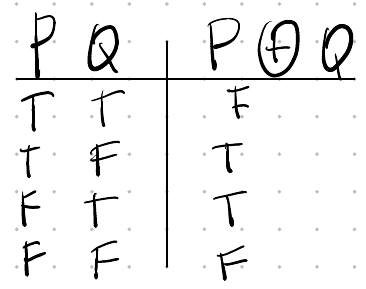 P Q P ⊕ Q
T T F
T F T
F T T
F F F